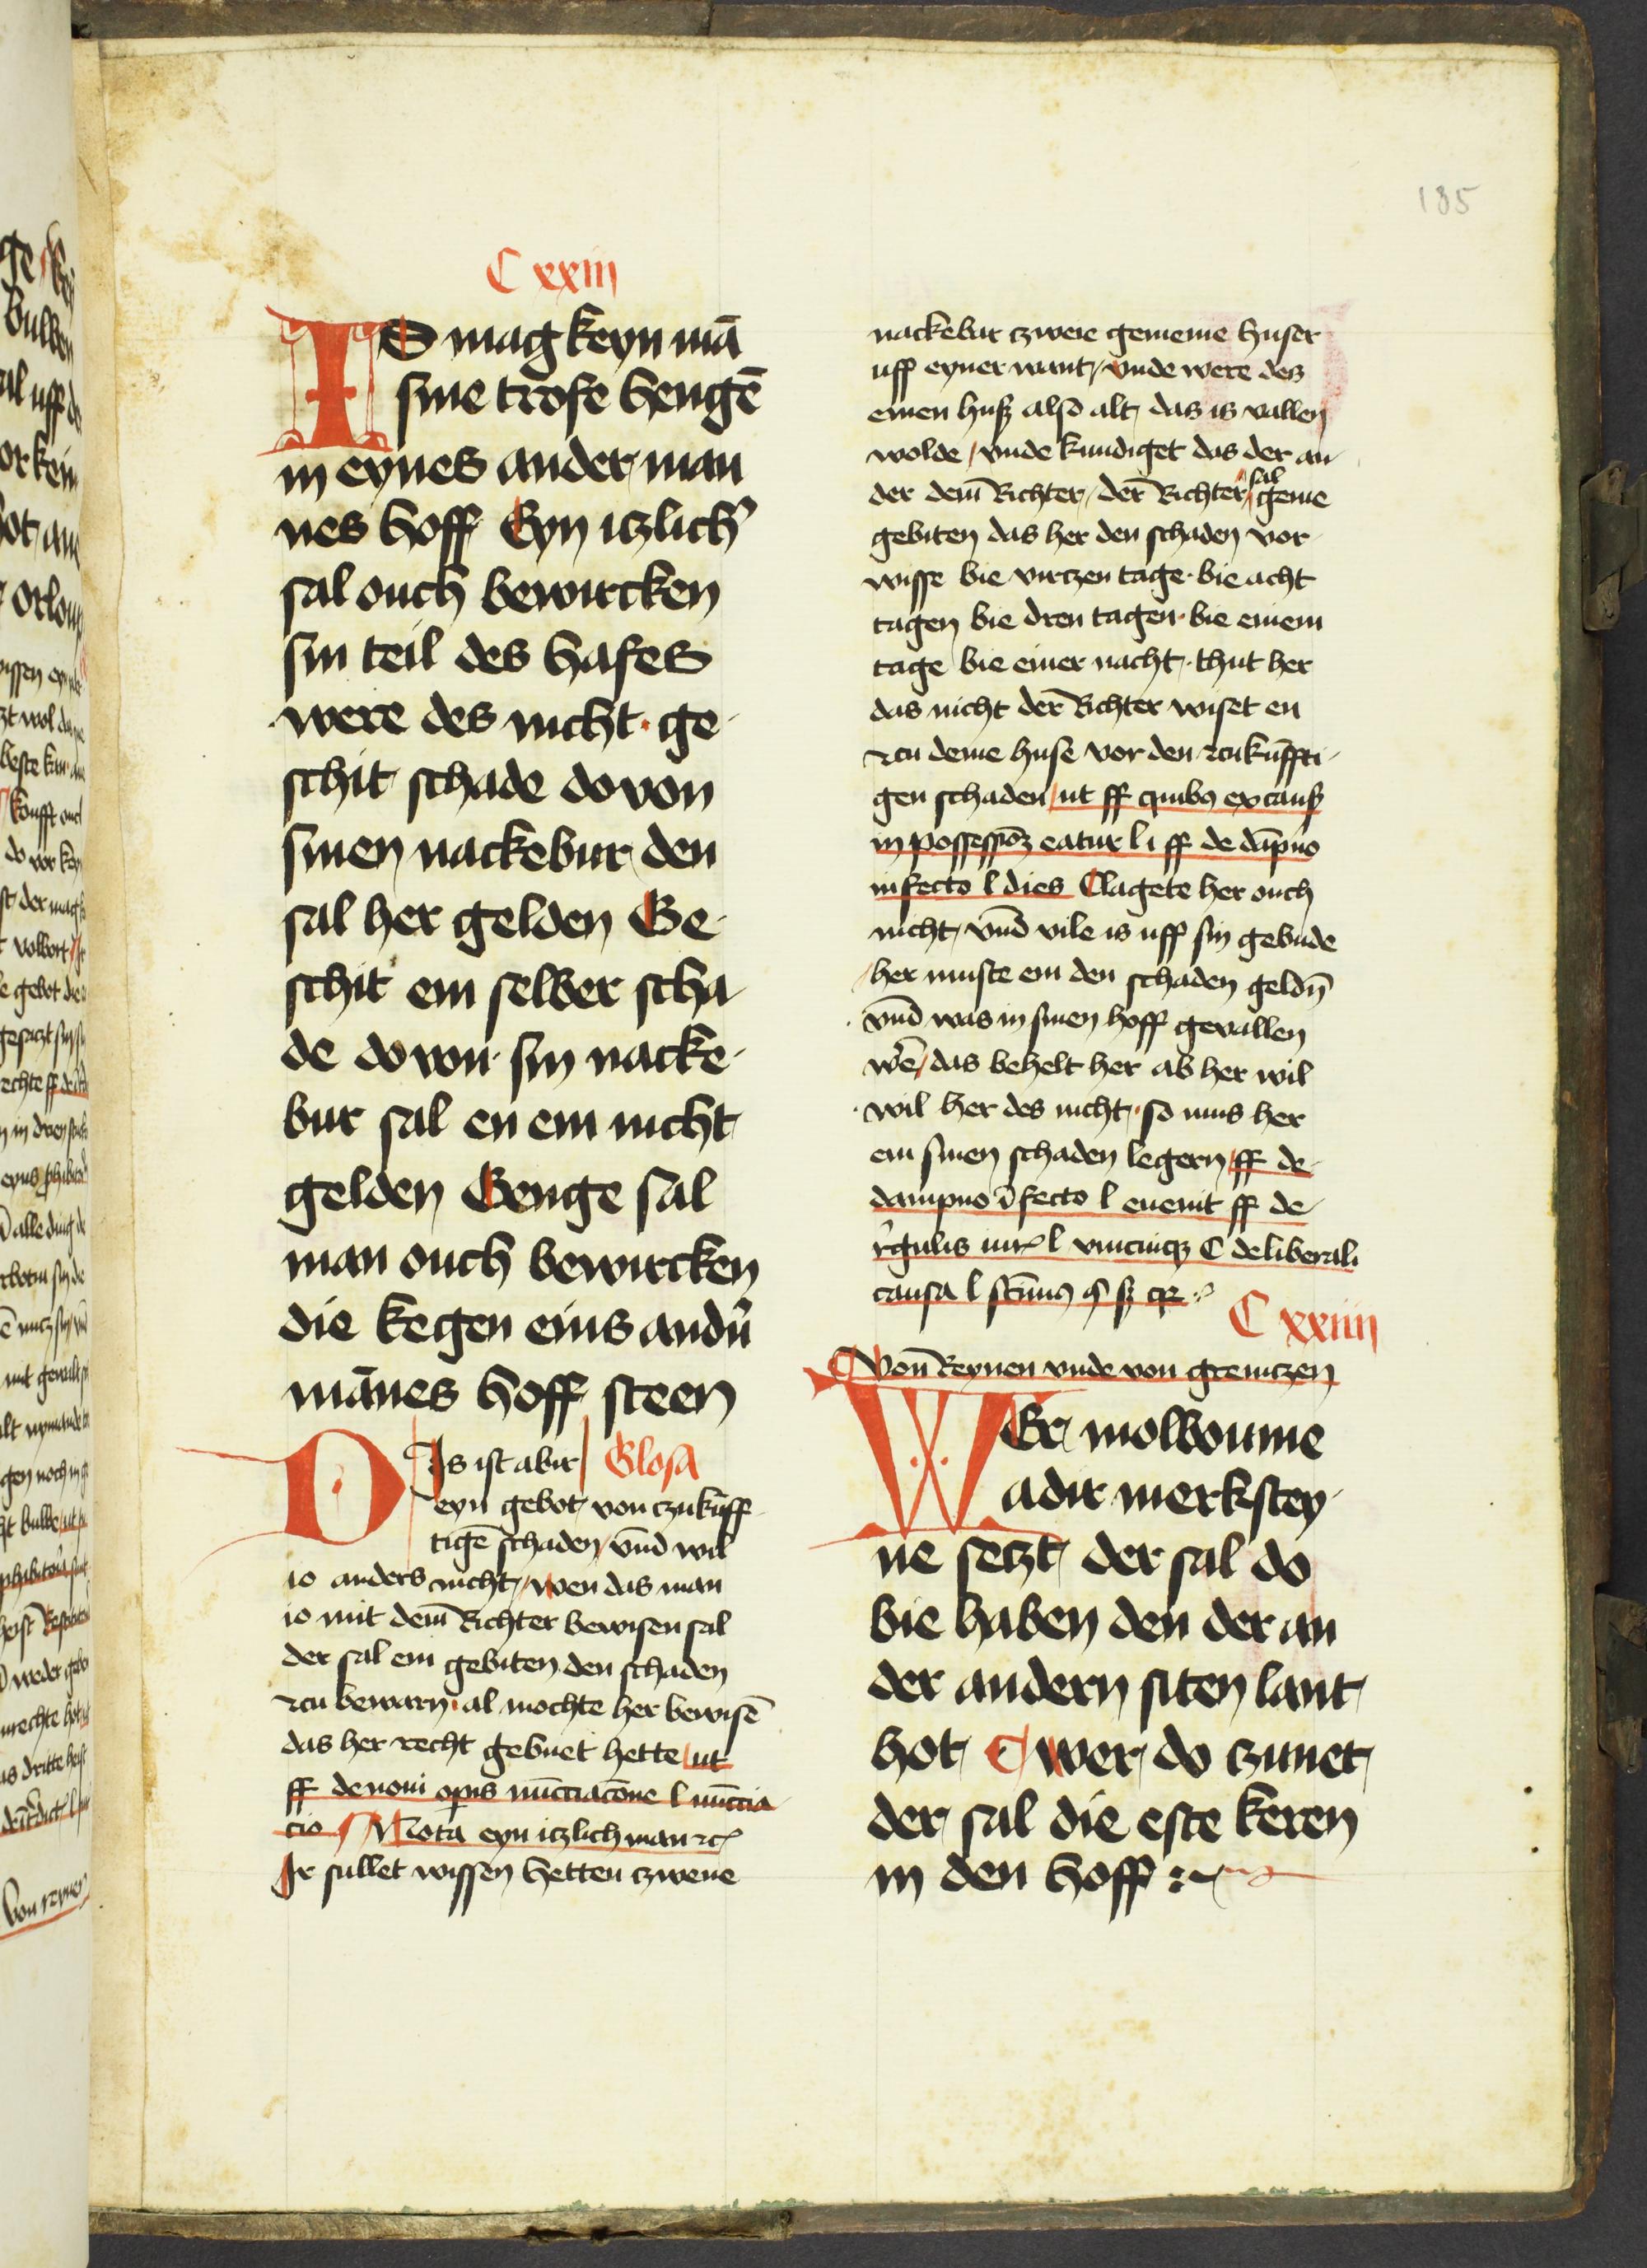 135
C xxiii
IS mag keyn mā
sine trofe hengē
in eynes ander man
nes hoff Eyn itzlich'
sal ouch bewircken
sin teil des hafes
were des nicht · ge
schit schade do von
sinen nackebur den
sal her gelden Ge
schit em selber scha
de do von · sin nacke
bur sal en em nicht
gelden Genge sal
man ouch bewircken
die kegen eins andn̄
mānes hoff steen
DIs ist abir Glosa
eyn gebot von czukūff
tigē schaden vnd wil
io anders nicht / wen das man
io mit dem Richter bewisen sal
der sal em gebiten den schaden
zcu bewarn · al mochte her bewisē
das her recht gebuet hette ut
ff de noui opis nūcciacōne l nūccia
cio Nota eyn itzlich man zc
Ir sullet wissen hetten zwene
nackebur zweie gemeine huser
uff eyner want / vnde were des
einen huß also alt das is vallen
wolde / vnde kundiget das der an
der dem Richter / der Richter sal geme
gebiten das her den schaden vor
wisse bie virczen tage · bie acht
tagen bie dren tagen · bie einem
tage bie einer nacht · thut her
das nicht der Richter wiset en
zcu deme huse vor den zcukūffti
gen schaden ut ff quibus ex causß
in possessiōz eatur l i ff de dāpno
infecto l dies Clagete her ouch
nicht / vnd vile is uff sin gebude
her muste em den schaden geldn̄
vnd was in sinen hoff gevallen
wē / das behelt her ab her wil
wil her des nicht · so mus her
em sinen schaden legern ff de
dampno īfecto l euenit ff de
r'gulis iur' l vnicuiqz C de liberali
causa l
C xxiiii
Von Reynen vnde von grenitzen
WEr molboume
adir merkstey
ne setzt der sal do
bie haben den der an
der andern siten lant
hot Wer do zunet
der sal die este keren
in den hoff :~